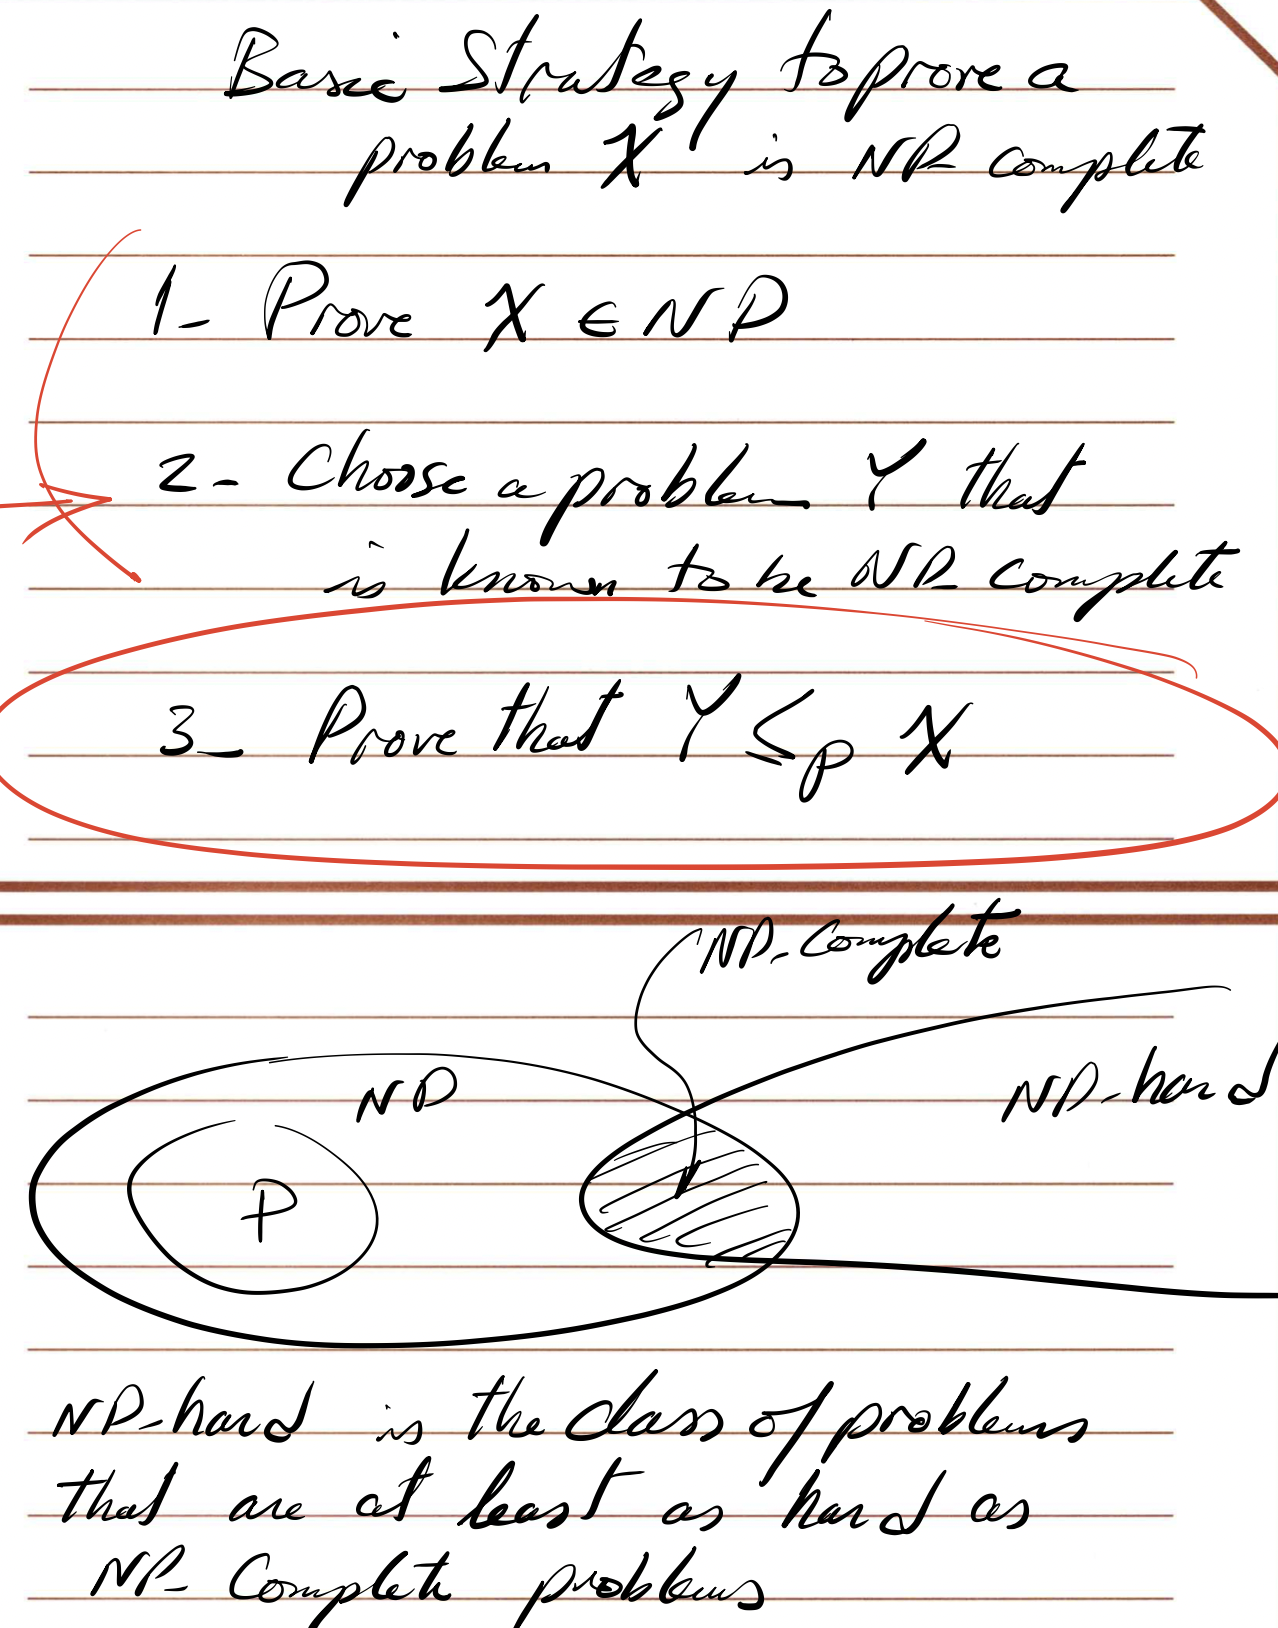 Basic Strategy to prove a
problem X is NP complete
1- Prove X ∈ NP
2- Choose a problem Y that
is known to be NP complete
3- Prove that Y ≤p X
NP-complete
NP
NP-hard
P
NP-hard is the class of problems
that are at least as hard as
NP-Complete problems